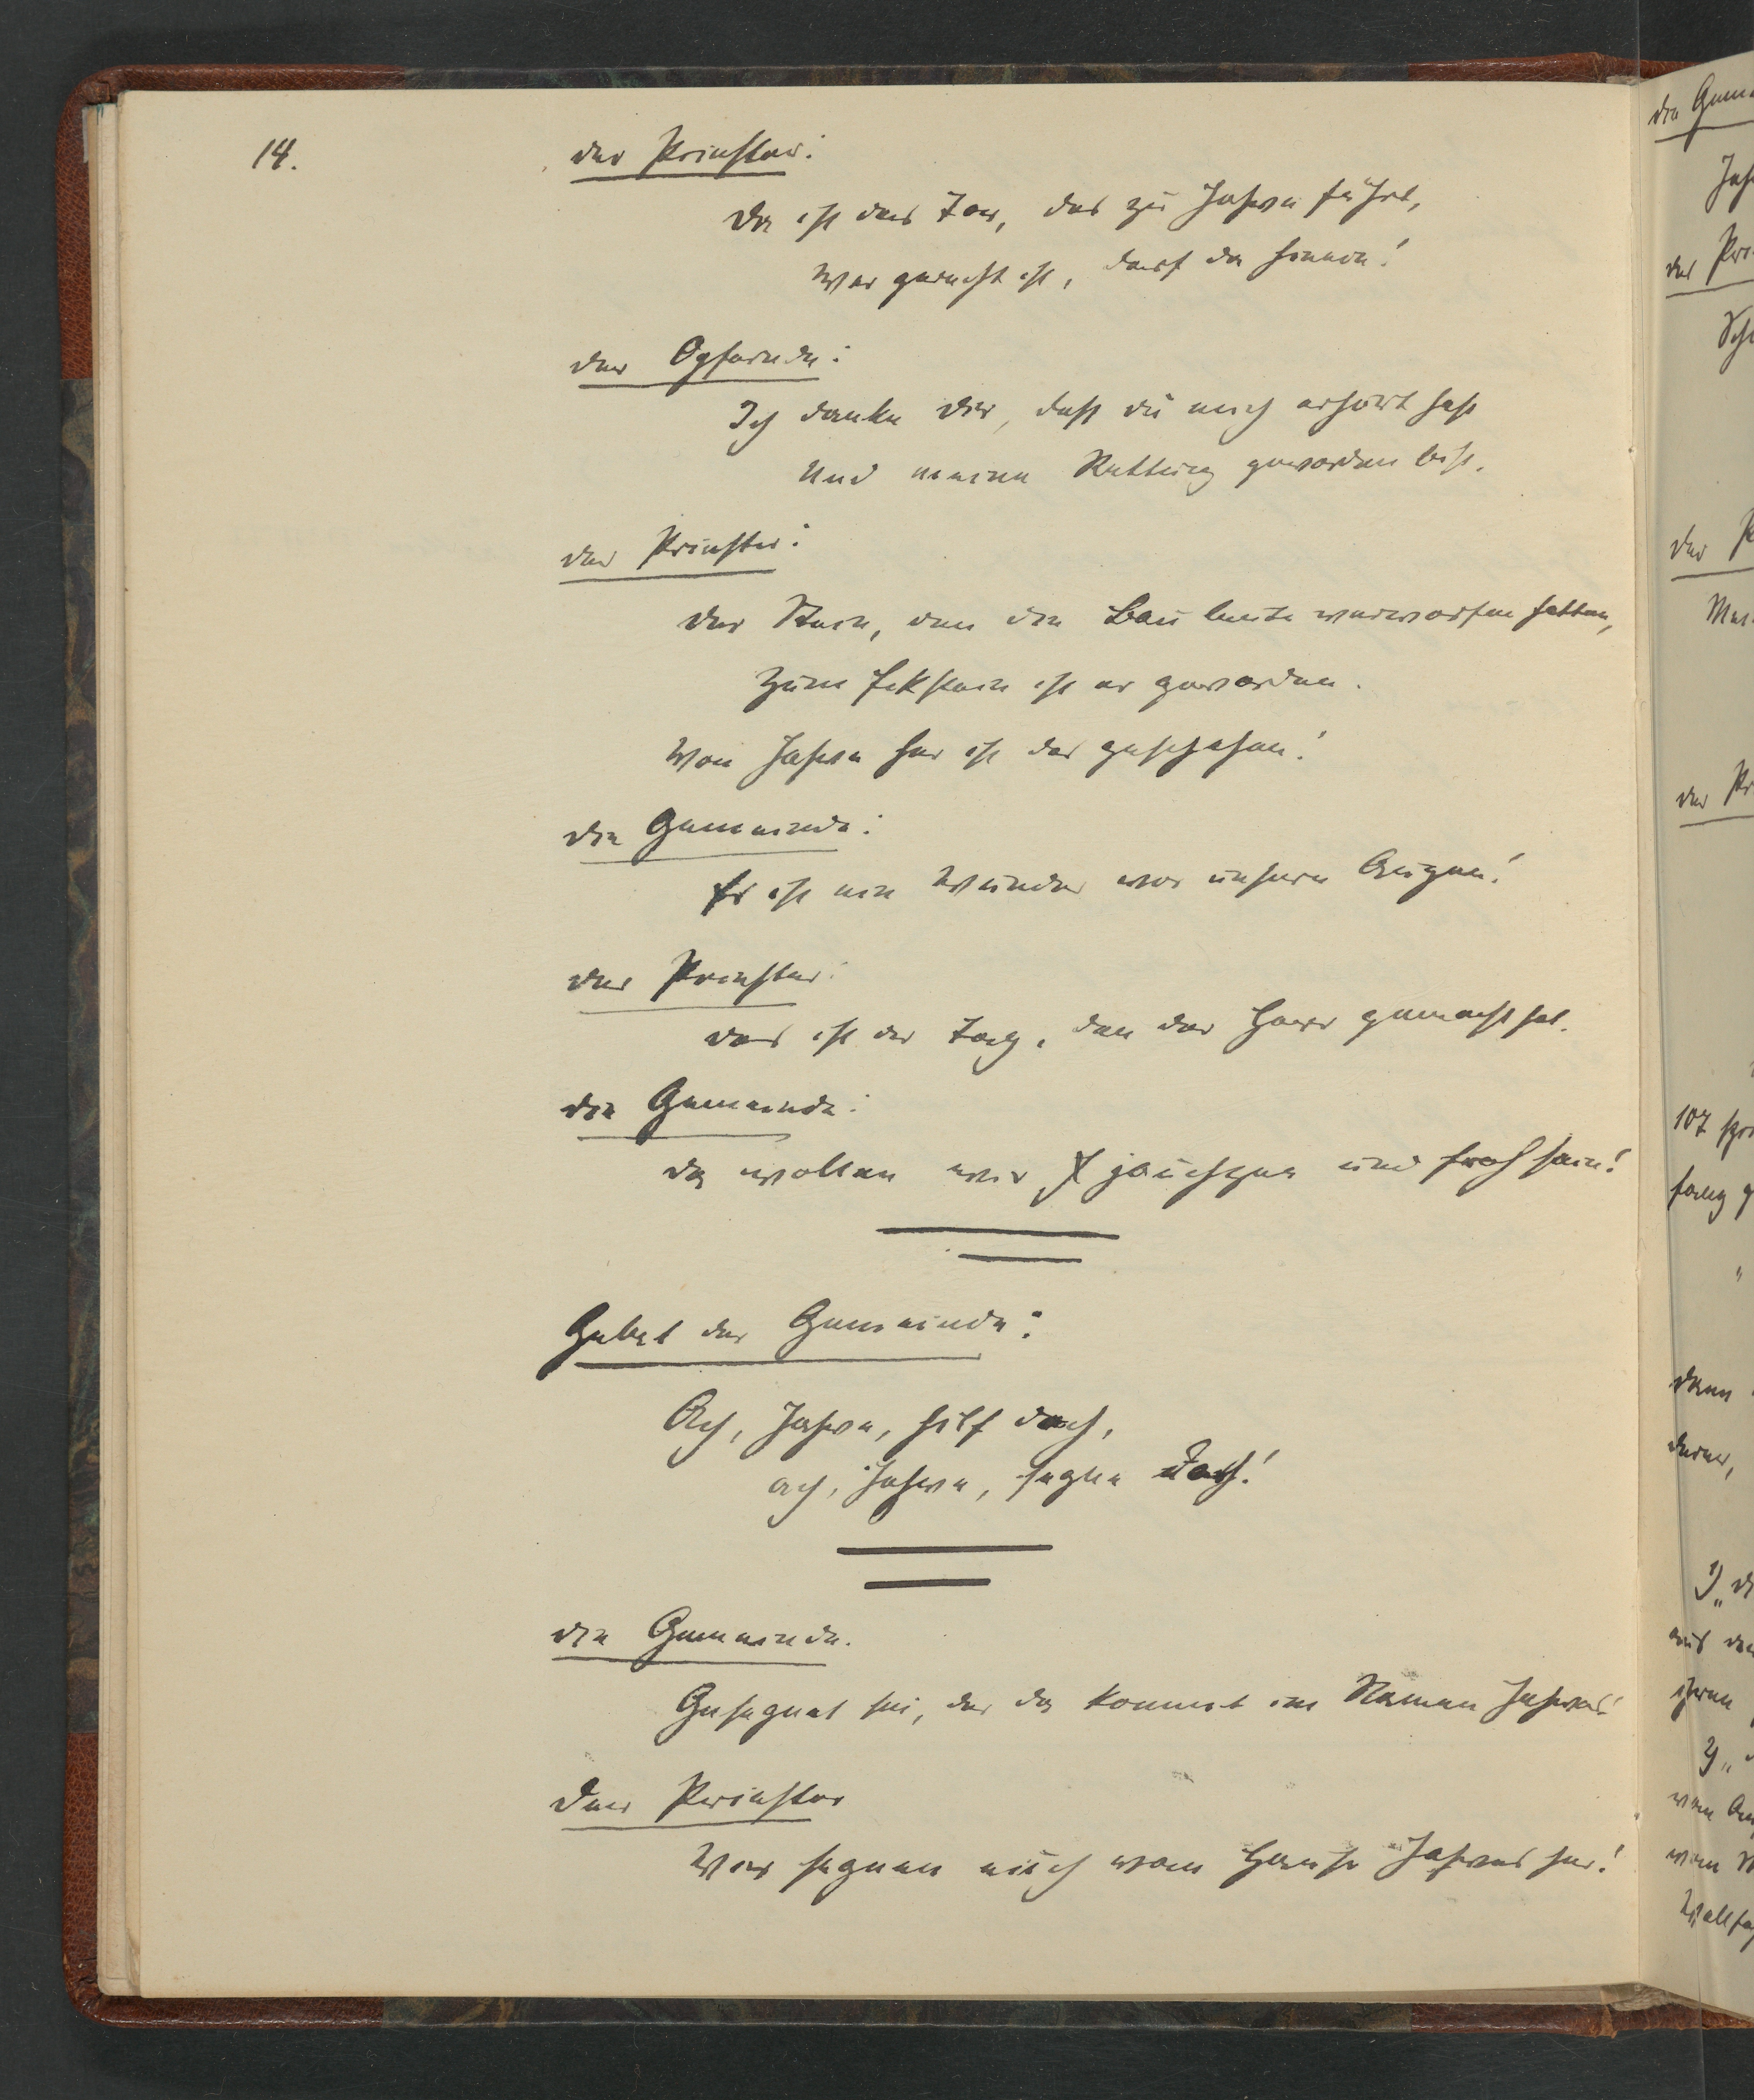 14.
der Priester:
Da ist das Tor, das zu Jahve führt,
Wer gerecht ist, darf da hinein!
der Opfernde:
Ich danke dir, dass du mich erhört hast
Und meine Rettung geworden bist.
der Priester:
Der Stein, den die Bauleute verworfen hatten,
Zum Eckstein ist er geworden.
Von Jahve her ist das geschehen!
die Gemeinde:
Es ist ein Wunder vor unsern Augen!
der Priester:
das ist der Tag, den der Herr gemacht hat.
die Gemeinde:
da wollen wir jauchzen und froh sein!
Gebet der Gemeinde:
Ach, Jahve, hilf doch,
ach, Jahve, segne doch!
die Gemeinde.
Gesegnet sei, der da kommt im Namen Jahves!
Der Priester
Wir segnen euch vom Hause Jahves her!
die
der
der
der
107
fang
dann
1)
aus
ihren
2)
vom
vom